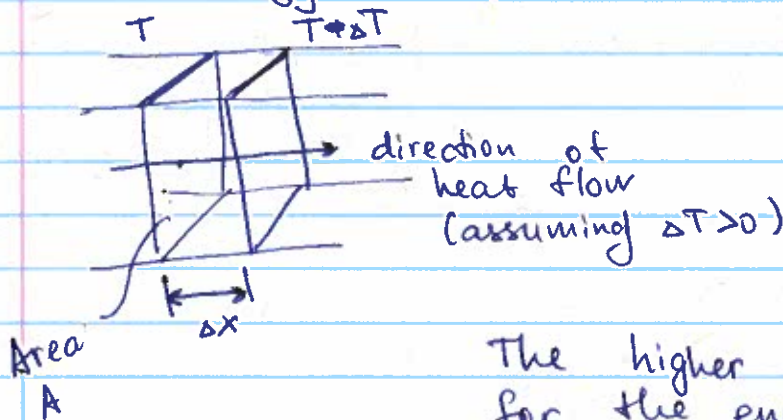 T
T+ΔT
direction of
heat flow
(assuming ΔT>0)
Δx
Area
A
The higher
for the en